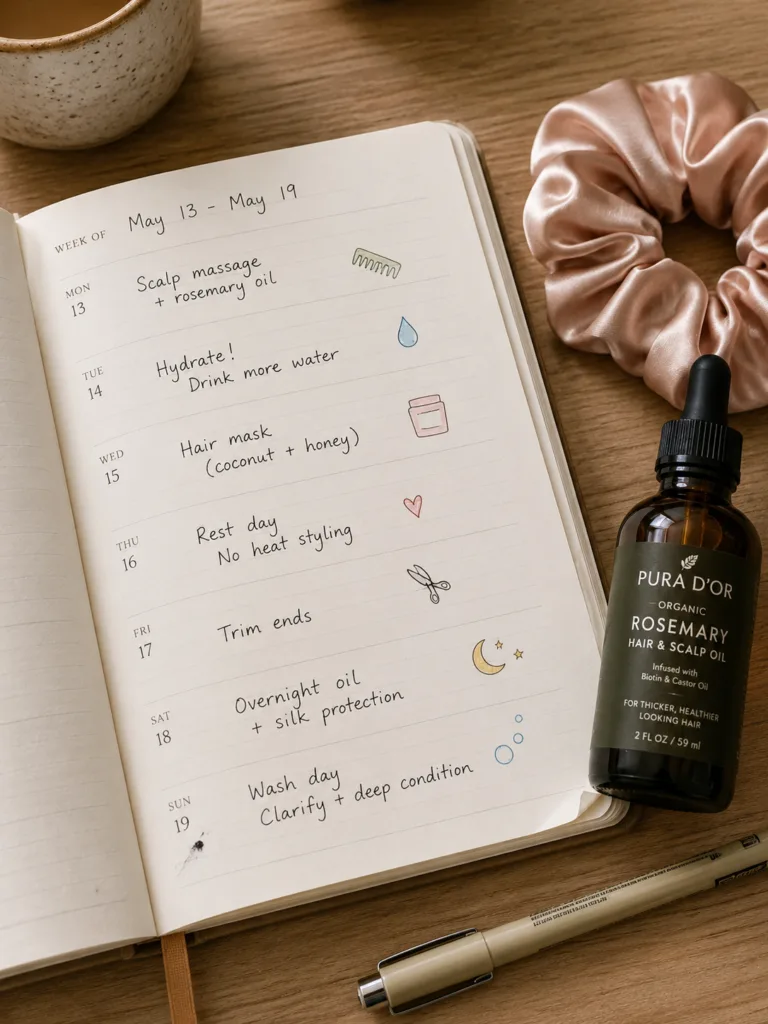 WEEK OF May 13 - May 19
MON
13
Scalp massage
+ rosemary oil
TUE
14
Hydrate!
Drink more water
WED
15
Hair mask
(coconut + honey)
THU
16
Rest day
No heat styling
FRI
17
Trim ends
SAT
18
Overnight oil
+ silk protection
SUN
19
Wash day
Clarify + deep condition
PURA D'OR
ORGANIC
ROSEMARY
HAIR & SCALP OIL
Infused with
Biotin & Castor Oil
FOR THICKER, HEALTHIER
LOOKING HAIR
2 FL OZ / 59 ml